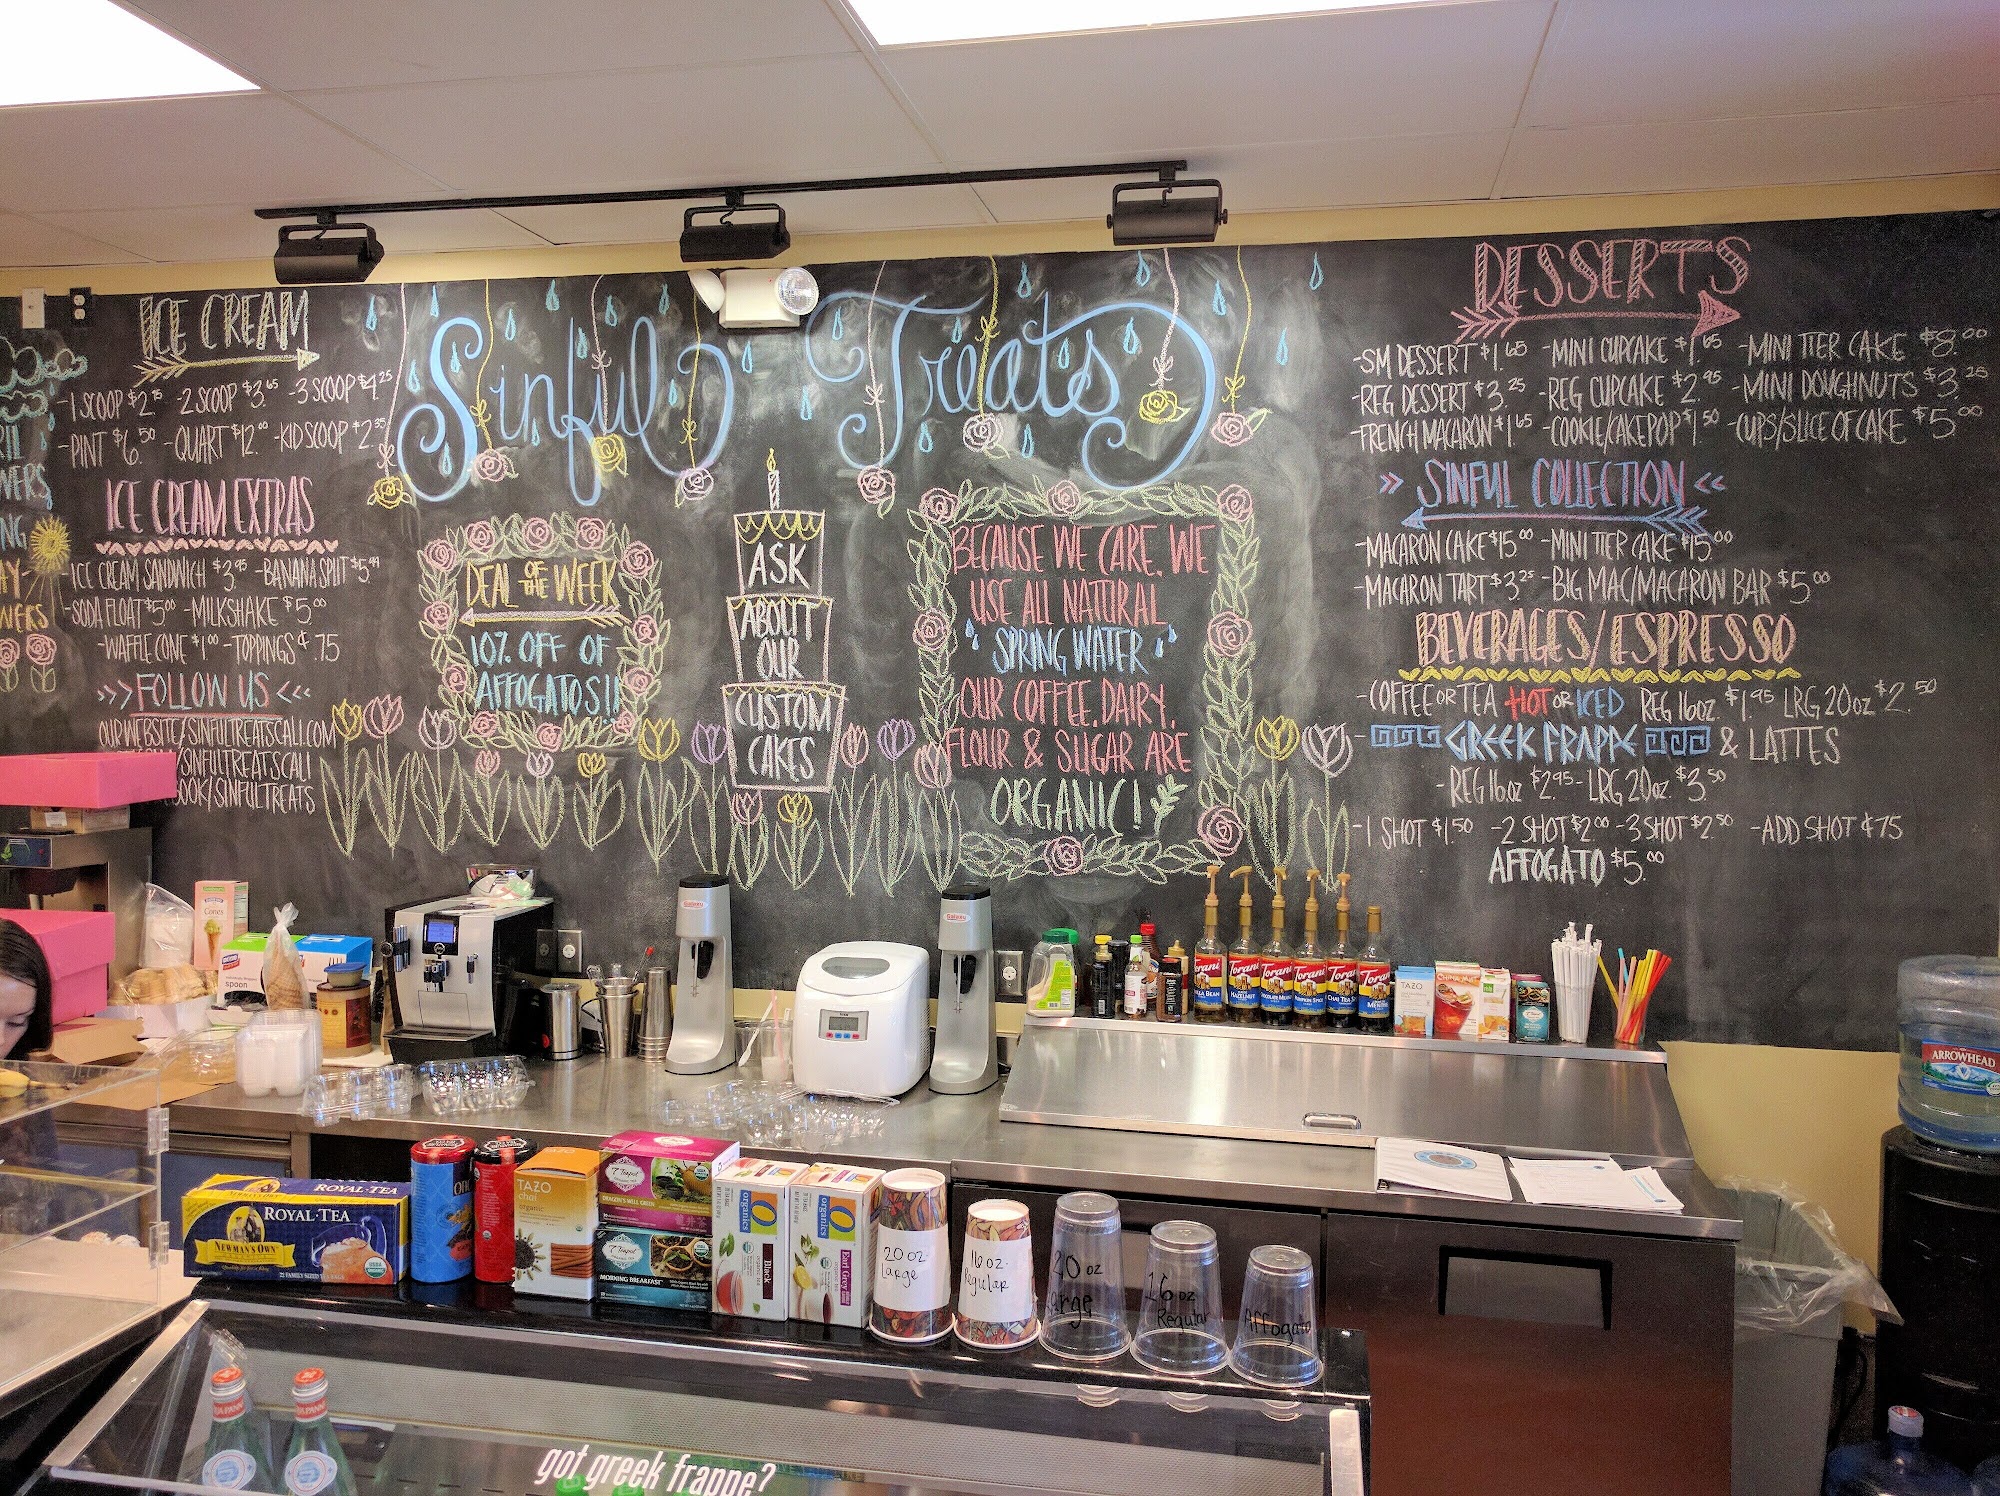 ICE CREAM
-1 SCOOP $2.75 -2 SCOOP $3.65 -3 SCOOP $4.25
-PINT $6.50 -QUART $12.00 -KID SCOOP $2.35
ICE CREAM EXTRAS
-ICE CREAM SANDWICH $3.95 -BANANA SPLIT $5.49
-SODA FLOAT $5.00 -MILKSHAKE $5.00
-WAFFLE CONE $1.00 -TOPPINGS ¢.75
>>> FOLLOW US <<<
OUR WEBSITE/SINFULTREATSCALI.COM
/SINFULTREATSCALI
OOK/SINFULTREATS
RIL
WERS
NG
AY
WERS
Sinful Treats
DEAL OF THE WEEK
10% OFF OF
AFFOGATOS!!
ASK
ABOUT
OUR
CUSTOM
CAKES
BECAUSE WE CARE. WE
USE ALL NATURAL
SPRING WATER
OUR COFFEE, DAIRY,
FLOUR & SUGAR ARE
ORGANIC!
DESSERTS
-SM DESSERT $1.65 -MINI CUPCAKE $1.65 -MINI TIER CAKE $8.00
-REG DESSERT $3.25 -REG CUPCAKE $2.95 -MINI DOUGHNUTS $3.25
-FRENCH MACARON $1.65 -COOKIE/CAKEPOP $1.50 -CUPS/SLICE OF CAKE $5.00
>> SINFUL COLLECTION <<
-MACARON CAKE $15.00 -MINI TIER CAKE $15.00
-MACARON TART $3.25 -BIG MAC/MACARON BAR $5.00
BEVERAGES/ESPRESSO
-COFFEE OR TEA HOT OR ICED REG 16oz. $1.95 LRG 20oz $2.50
- GREEK FRAPPE & LATTES
-REG 16oz $2.95 - LRG 20oz. $3.50
-1 SHOT $1.50 -2 SHOT $2.00 -3 SHOT $2.50 -ADD SHOT ¢75
AFFOGATO $5.00
Cones
spoon
Torani Torani Torani Torani Torani Torani
HAZELNUT
TAZO
ARROWHEAD
ROYAL·TEA
ROYAL·TEA
NEWMAN'S OWN
TAZO
chai
organic
7 Teapot
DRAGON'S WELL GREEN
7 Teapot
MORNING BREAKFAST
O organics
Black
O organics
Earl Grey
20 oz.
Large
16 oz.
Regular
20 oz
Large
16 oz
Regular
Affogato
got greek frappe?